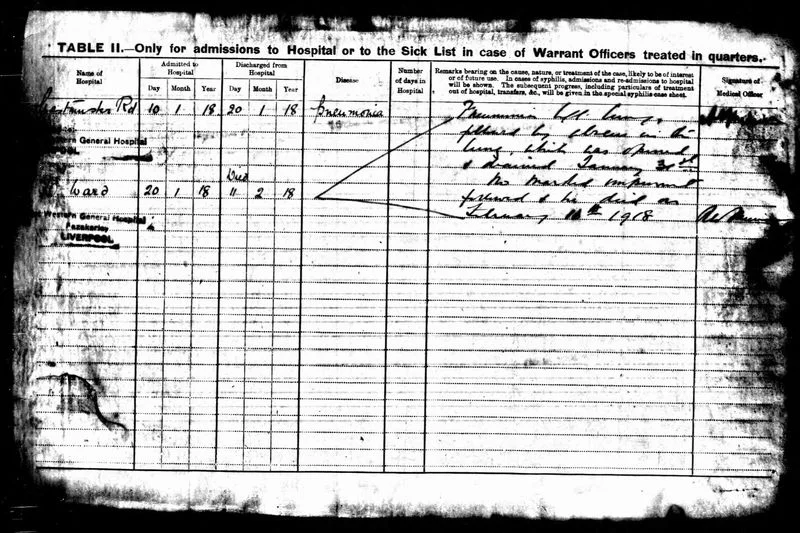 TABLE II.—Only for admissions to Hospital or to the Sick List in case of Warrant Officers treated in quarters.
Name of Hospital
Admitted to Hospital
Day Month Year
Discharged from Hospital
Day Month Year
Disease
Number of days in Hospital
Remarks bearing on the cause, nature, or treatment of the case, likely to be of interest
or of future use. In cases of syphilis, admissions and re-admissions to hospital
will be shown. The subsequent progress, including particulars of treatment
out of hospital, transfers, &c., will be given in the special syphilis case sheet.
Signature of Medical Officer
Rd 10 1 18 20 1 18 Pneumonia
Pneumonia left lung,
followed by abscess in the
lung, which was opened
& drained January 30th
No marked improvement
followed & he died on
February 11th 1918
Western General Hospital
Died
Ward 20 1 18 11 2 18
Western General Hospital
Fazakerley
LIVERPOOL